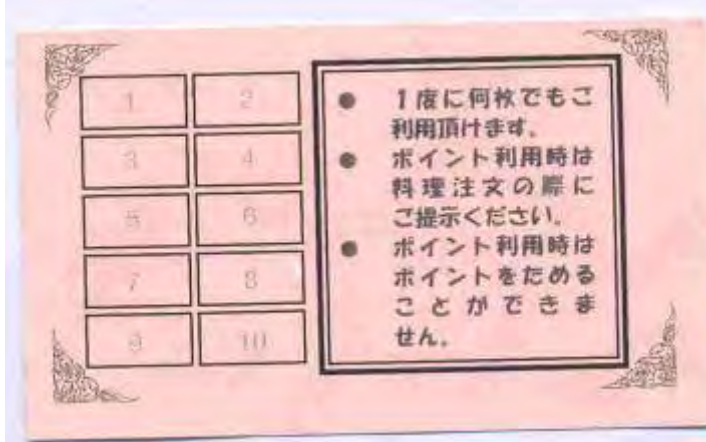 1 2
3 4
5 6
7 8
9 10
● 1度に何枚でもご
利用頂けます。
● ポイント利用時は
料理注文の際に
ご提示ください。
● ポイント利用時は
ポイントをためる
ことができま
せん。